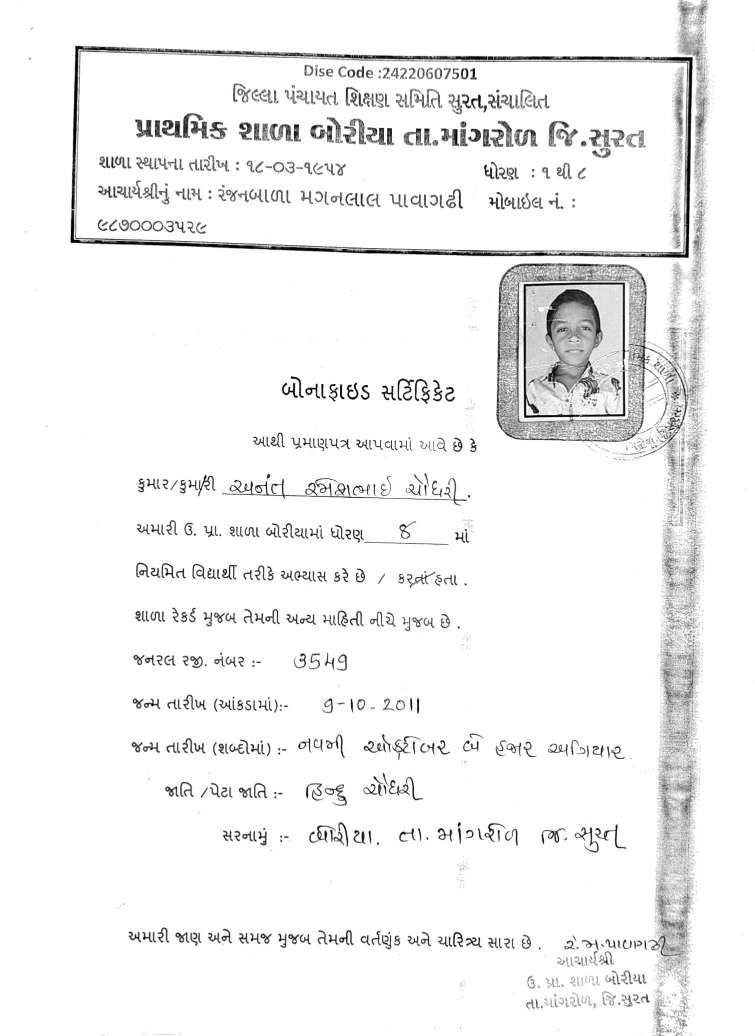 Dise Code :24220607501
જિલ્લા પંચાયત શિક્ષણ સમિતિ સુરત,સંચાલિત
પ્રાથમિક શાળા બોરીયા તા.માંગરોળ જિ.સુરત
શાળા સ્થાપના તારીખ : ૧૮-૦૩-૧૯૫૪ ધોરણ : ૧ થી ૮
આચાર્યશ્રીનું નામ : રંજનબાળા મગનલાલ પાવાગઢી મોબાઇલ નં. :
૯૮૭૦૦૦૩૫૨૯
બોનાફાઇડ સર્ટિફિકેટ
આથી પ્રમાણપત્ર આપવામાં આવે છે કે
કુમાર/કુમારી અનંત રમેશભાઈ ચૌધરી.
અમારી ઉ. પ્રા. શાળા બોરીયામાં ધોરણ 8 માં
નિયમિત વિદ્યાર્થી તરીકે અભ્યાસ કરે છે / કરતાં હતા .
શાળા રેકર્ડ મુજબ તેમની અન્ય માહિતી નીચે મુજબ છે .
જનરલ રજી. નંબર :- ૩૫૪૧
જન્મ તારીખ (આંકડામાં):- 9-10-2011
જન્મ તારીખ (શબ્દોમાં) :- નવમી ઓક્ટોબર બે હજાર અગિયાર
જાતિ /પેટા જાતિ :- હિન્દુ ચૌધરી
સરનામું :- બોરીયા. તા. માંગરોળ જિ. સુરત
અમારી જાણ અને સમજ મુજબ તેમની વર્તણુંક અને ચારિત્ર્ય સારા છે . ર.મ.પાવાગઢી
આચાર્યશ્રી
ઉ. પ્રા. શાળા બોરીયા
તા.માંગરોળ, જિ.સુરત